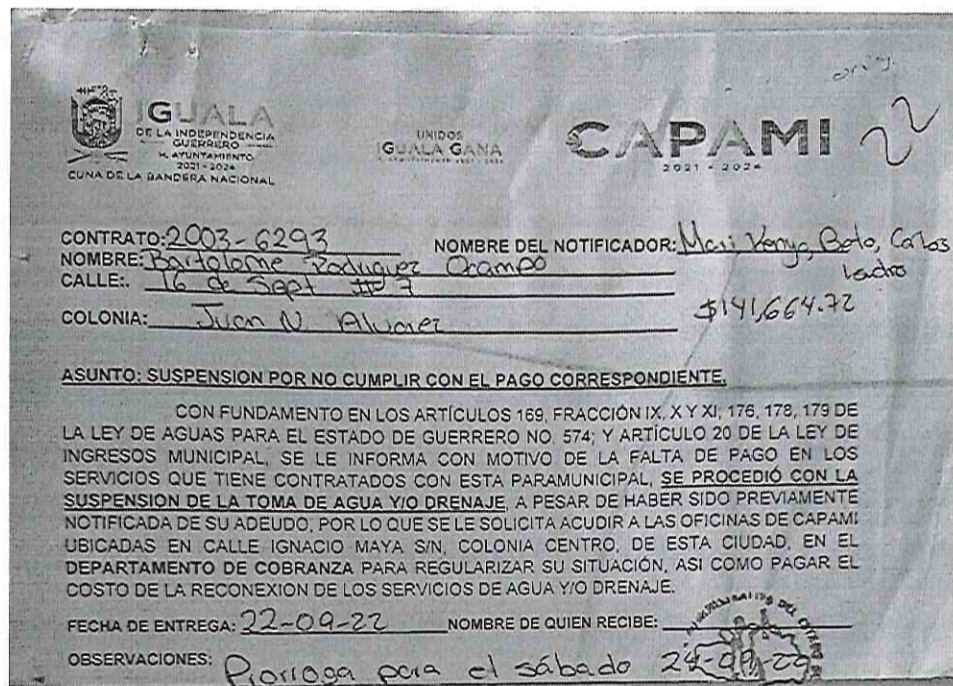 orig.
IGUALA
DE LA INDEPENDENCIA
GUERRERO
H. AYUNTAMIENTO
2021 - 2024
CUNA DE LA BANDERA NACIONAL
UNIDOS
IGUALA GANA
CAPAMI
2021 - 2024
22
CONTRATO: 2003-6293 NOMBRE DEL NOTIFICADOR: Mari Kenya, Beto, Carlos
NOMBRE: Bartolome Rodriguez Ocampo
CALLE:. 16 de Sept # 7
$141,664.72
COLONIA: Juan N. Alvarez
ASUNTO: SUSPENSION POR NO CUMPLIR CON EL PAGO CORRESPONDIENTE.
CON FUNDAMENTO EN LOS ARTÍCULOS 169, FRACCIÓN IX, X Y XI; 176, 178, 179 DE
LA LEY DE AGUAS PARA EL ESTADO DE GUERRERO NO. 574; Y ARTÍCULO 20 DE LA LEY DE
INGRESOS MUNICIPAL, SE LE INFORMA CON MOTIVO DE LA FALTA DE PAGO EN LOS
SERVICIOS QUE TIENE CONTRATADOS CON ESTA PARAMUNICIPAL, SE PROCEDIÓ CON LA
SUSPENSION DE LA TOMA DE AGUA Y/O DRENAJE, A PESAR DE HABER SIDO PREVIAMENTE
NOTIFICADA DE SU ADEUDO, POR LO QUE SE LE SOLICITA ACUDIR A LAS OFICINAS DE CAPAMI
UBICADAS EN CALLE IGNACIO MAYA S/N, COLONIA CENTRO, DE ESTA CIUDAD, EN EL
DEPARTAMENTO DE COBRANZA PARA REGULARIZAR SU SITUACIÓN, ASI COMO PAGAR EL
COSTO DE LA RECONEXION DE LOS SERVICIOS DE AGUA Y/O DRENAJE.
FECHA DE ENTREGA: 22-09-22 NOMBRE DE QUIEN RECIBE:
OBSERVACIONES: Prorroga para el sábado 24-09-22